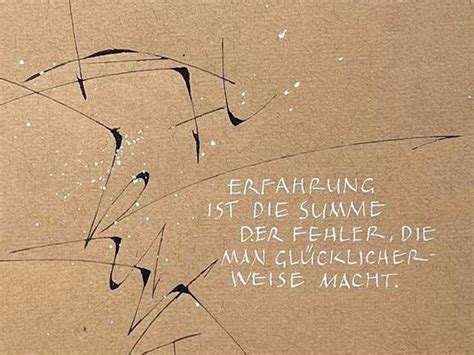 ERFAHRUNG
IST DIE SUMME
DER FEHLER, DIE
MAN GLÜCKLICHER-
WEISE MACHT.